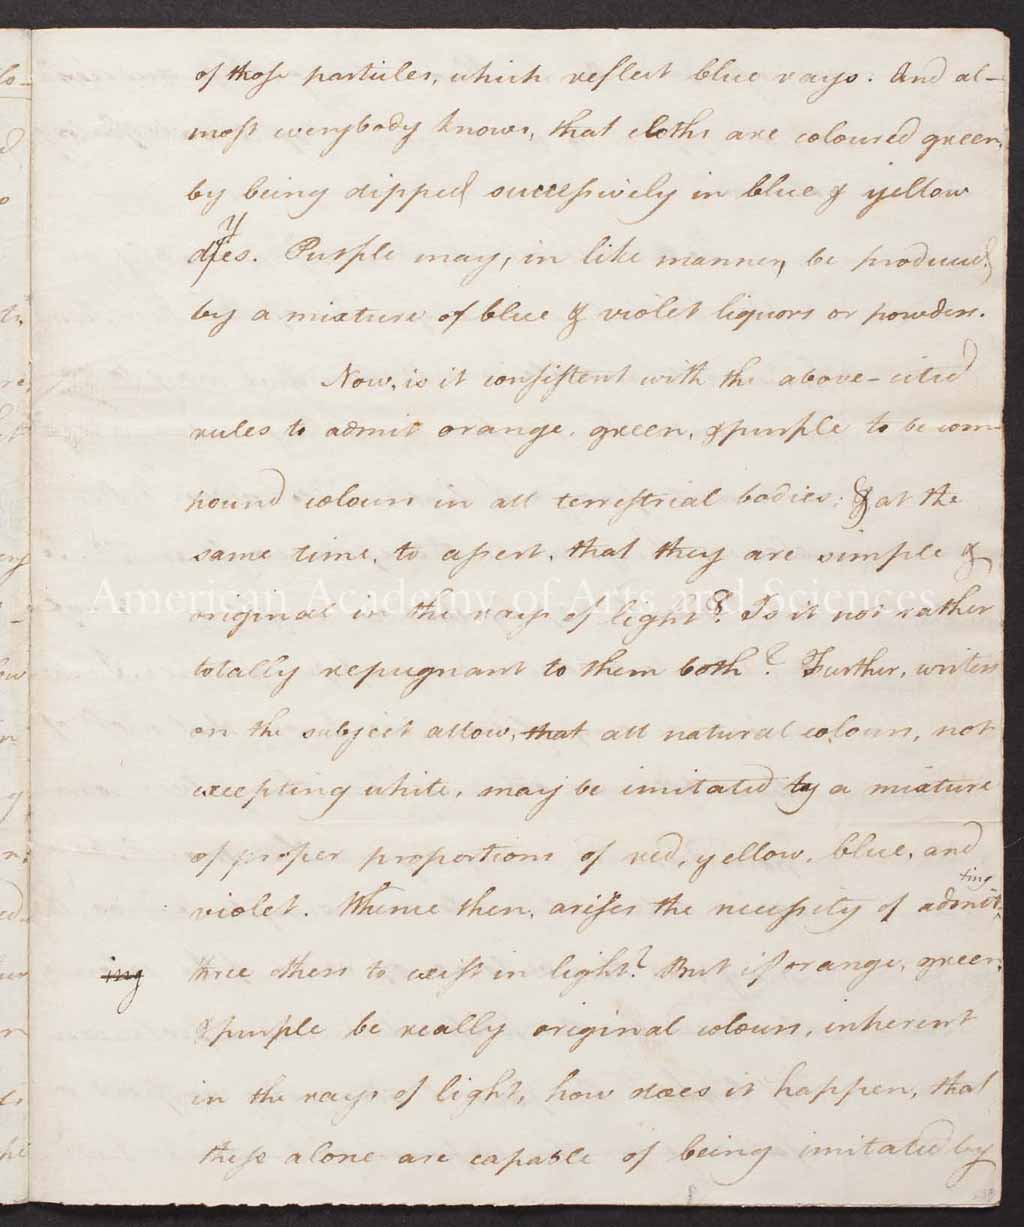 of those particles, which reflect blue rays. And al-
most everybody knows, that cloths are coloured green,
by being dipped successively in blue & yellow
dyes. Purple may, in like manner, be produced
by a mixture of blue & violet liquors or powders.
Now, is it consistent with the above-cited
rules to admit orange, green, & purple to be com-
pound colours in all terrestrial bodies; & at the
same time, to assert, that they are simple &
American Academy of Arts and Sciences
original in the rays of light? Is it not rather
totally repugnant to them both? Further, writers
on the subject allow, that all natural colours, not
excepting white, may be imitated by a mixture
of proper proportions of red, yellow, blue, and
violet. Whence then, arises the necessity of admitting
ing three others to exist in light? But if orange, green,
& purple be really original colours, inherent
in the rays of light, how does it happen, that
these alone are capable of being imitated by